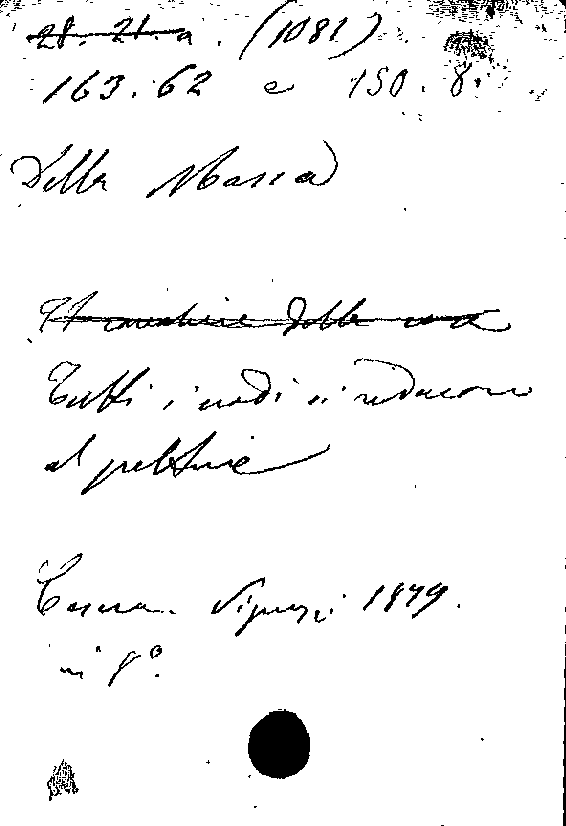 28. 21. a. (1081)
163. 62 e 150. 8.
Della Massa
Il cavaliere della rosa
Tutti i nodi si riducono
al pettine
Cesena. Vignuzzi 1879.
in 8º.